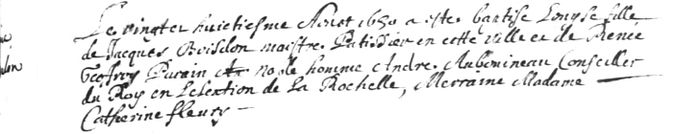 Le vingter huictiesme Aoust 1650 a este baptise Louyse fille
de Jacques Boisdon maistre Patissier en cette ville et de Renee
Geofroy Parain noble homme Andre Aubouineau Conseiller
du Roy en Leslection de La Rochelle, Merraine Madame
Catherine fleury